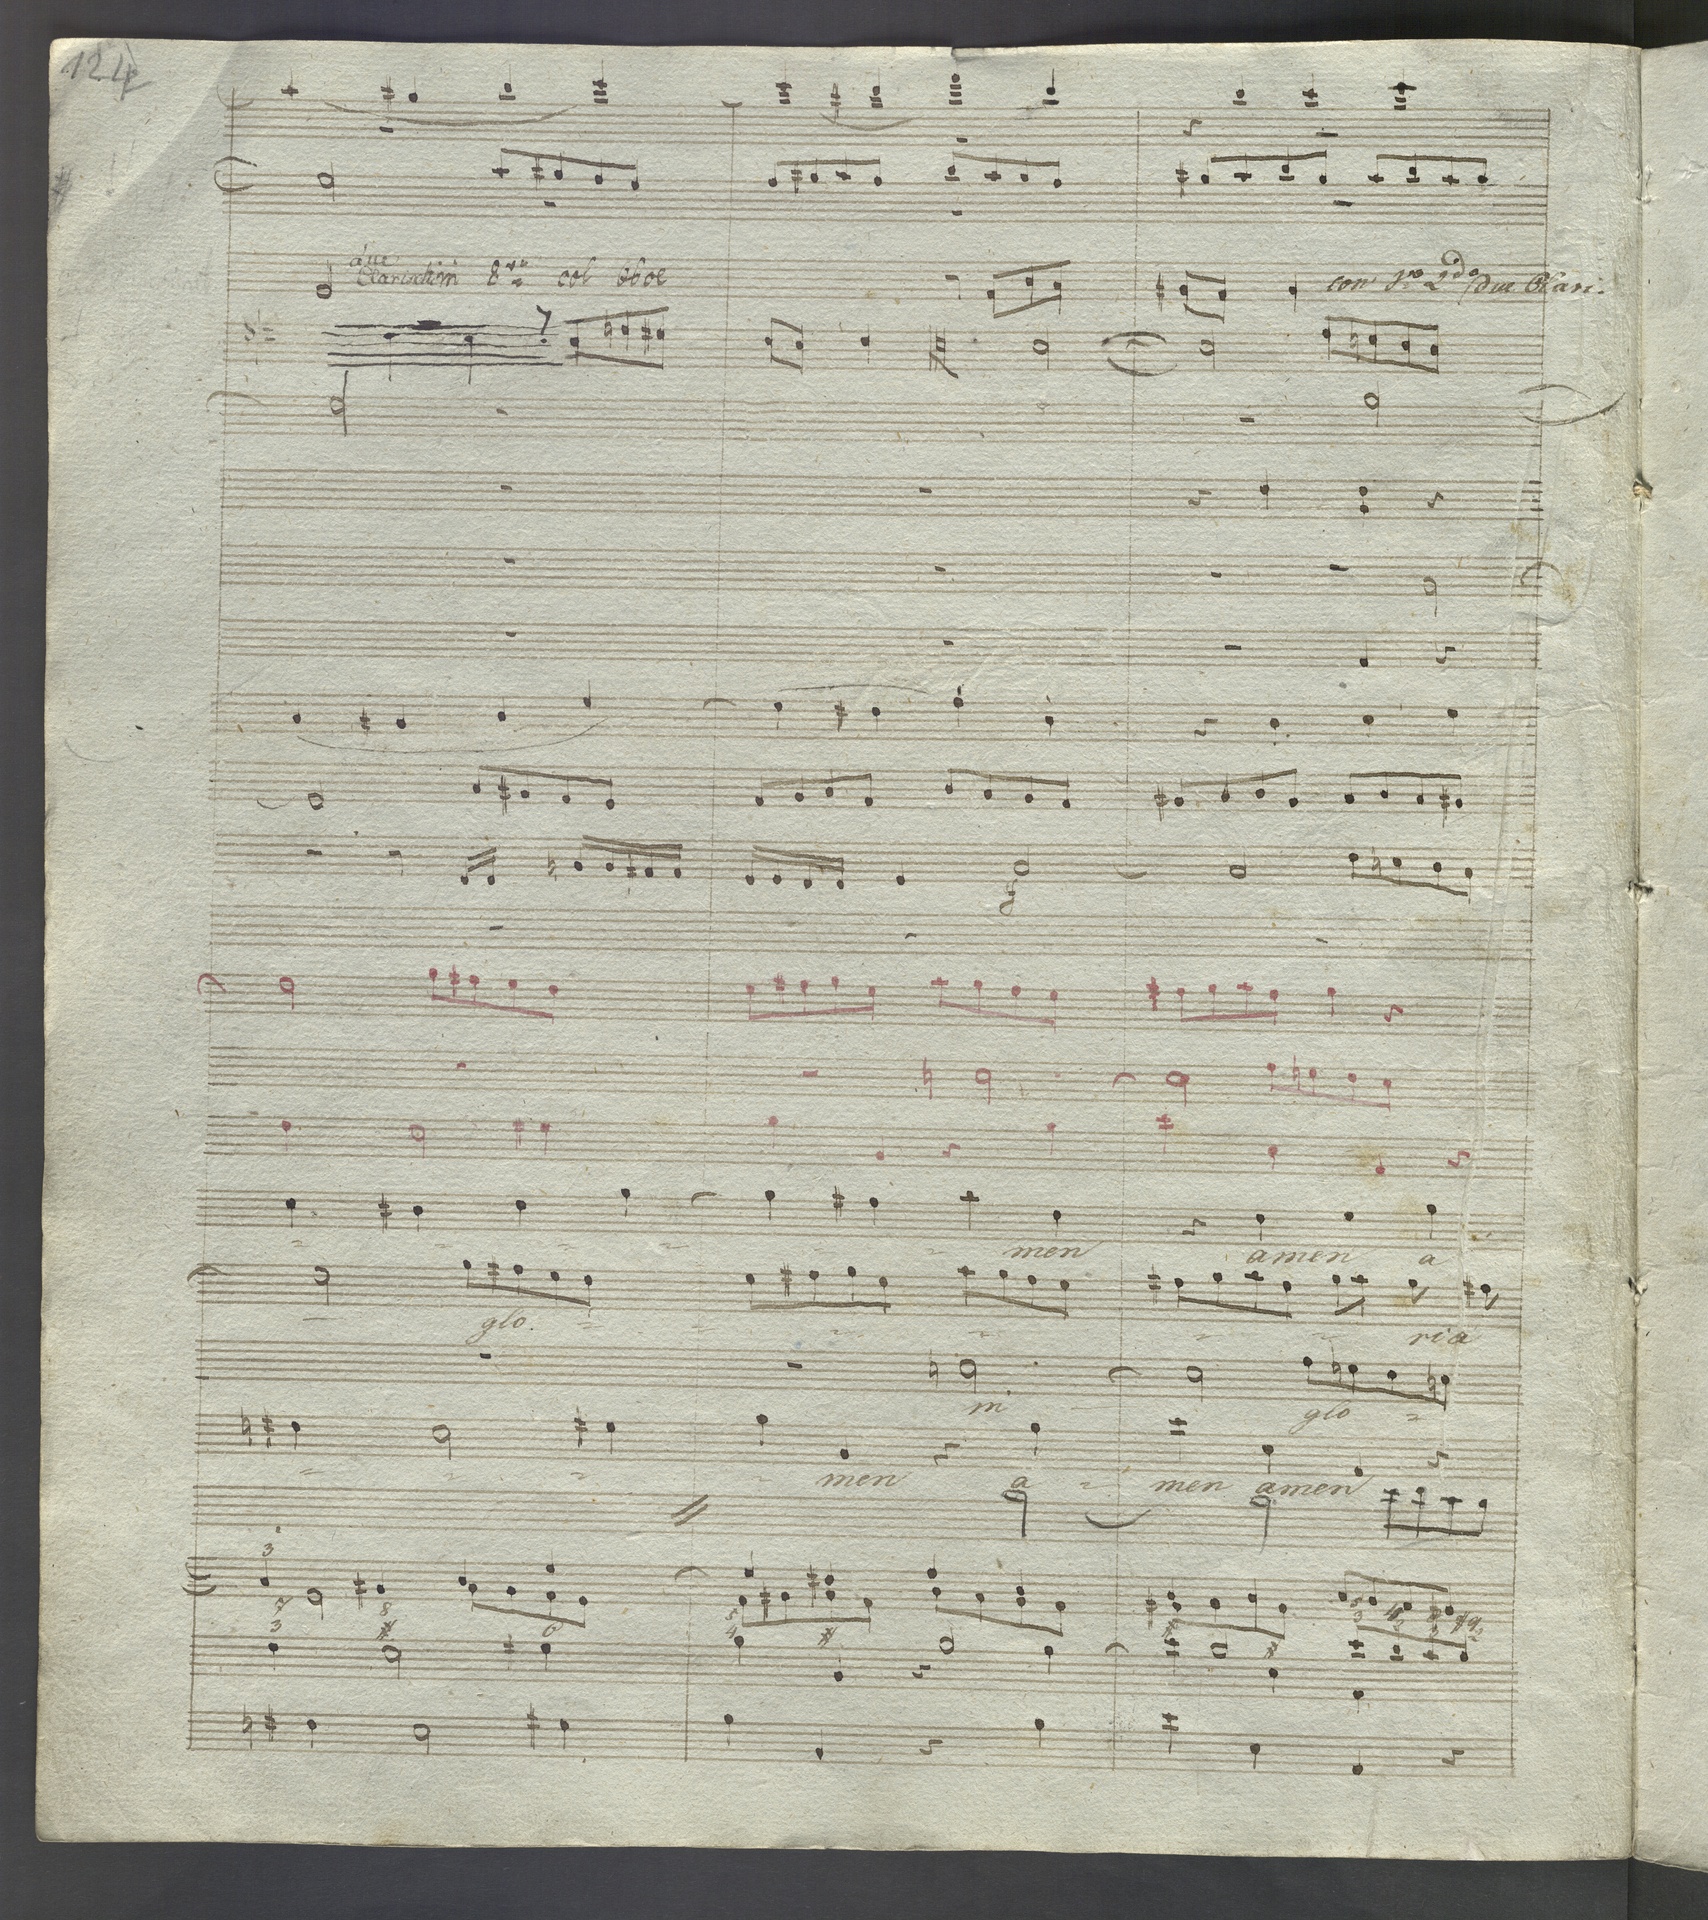 124
due
Clarinettini 8va col oboe
con 1mo 2do due Clari.
men amen a
glo. ria
in glo
men a men amen
3
5 8
3 # 6
5
4 #